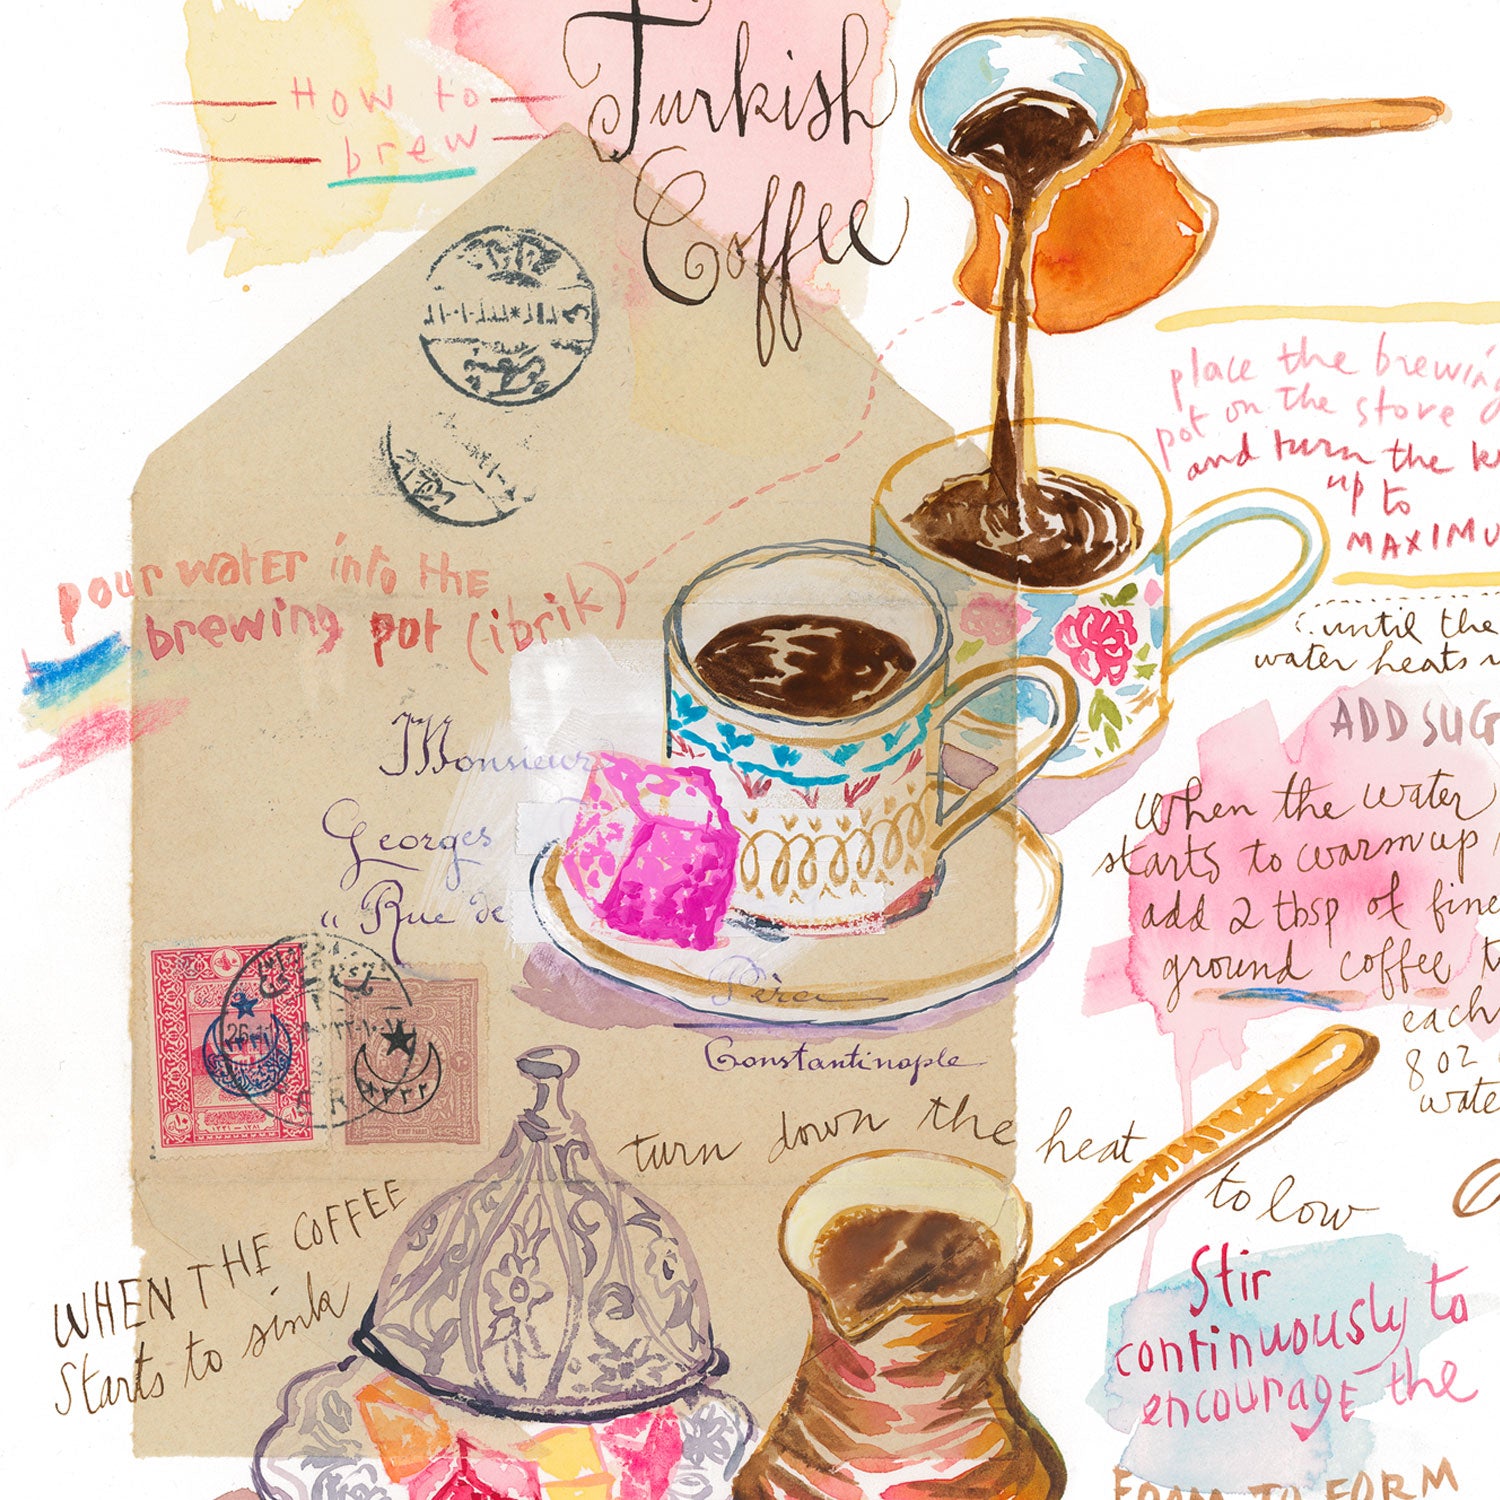 How to
brew
Turkish
Coffee
place the brewing
pot on the stove
and turn the
up to
MAXIMU
pour water into the
brewing pot (ibrik)
until the
water heats
ADD SUG
When the water
starts to warm up
add 2 tbsp of fine
ground coffee
each
8 oz
wate
Monsieur
Georges
" Rue de
Péra
Constantinople
turn down the heat
to low
WHEN THE COFFEE
Starts to sink
Stir
continuously to
encourage the
FOAM TO FORM